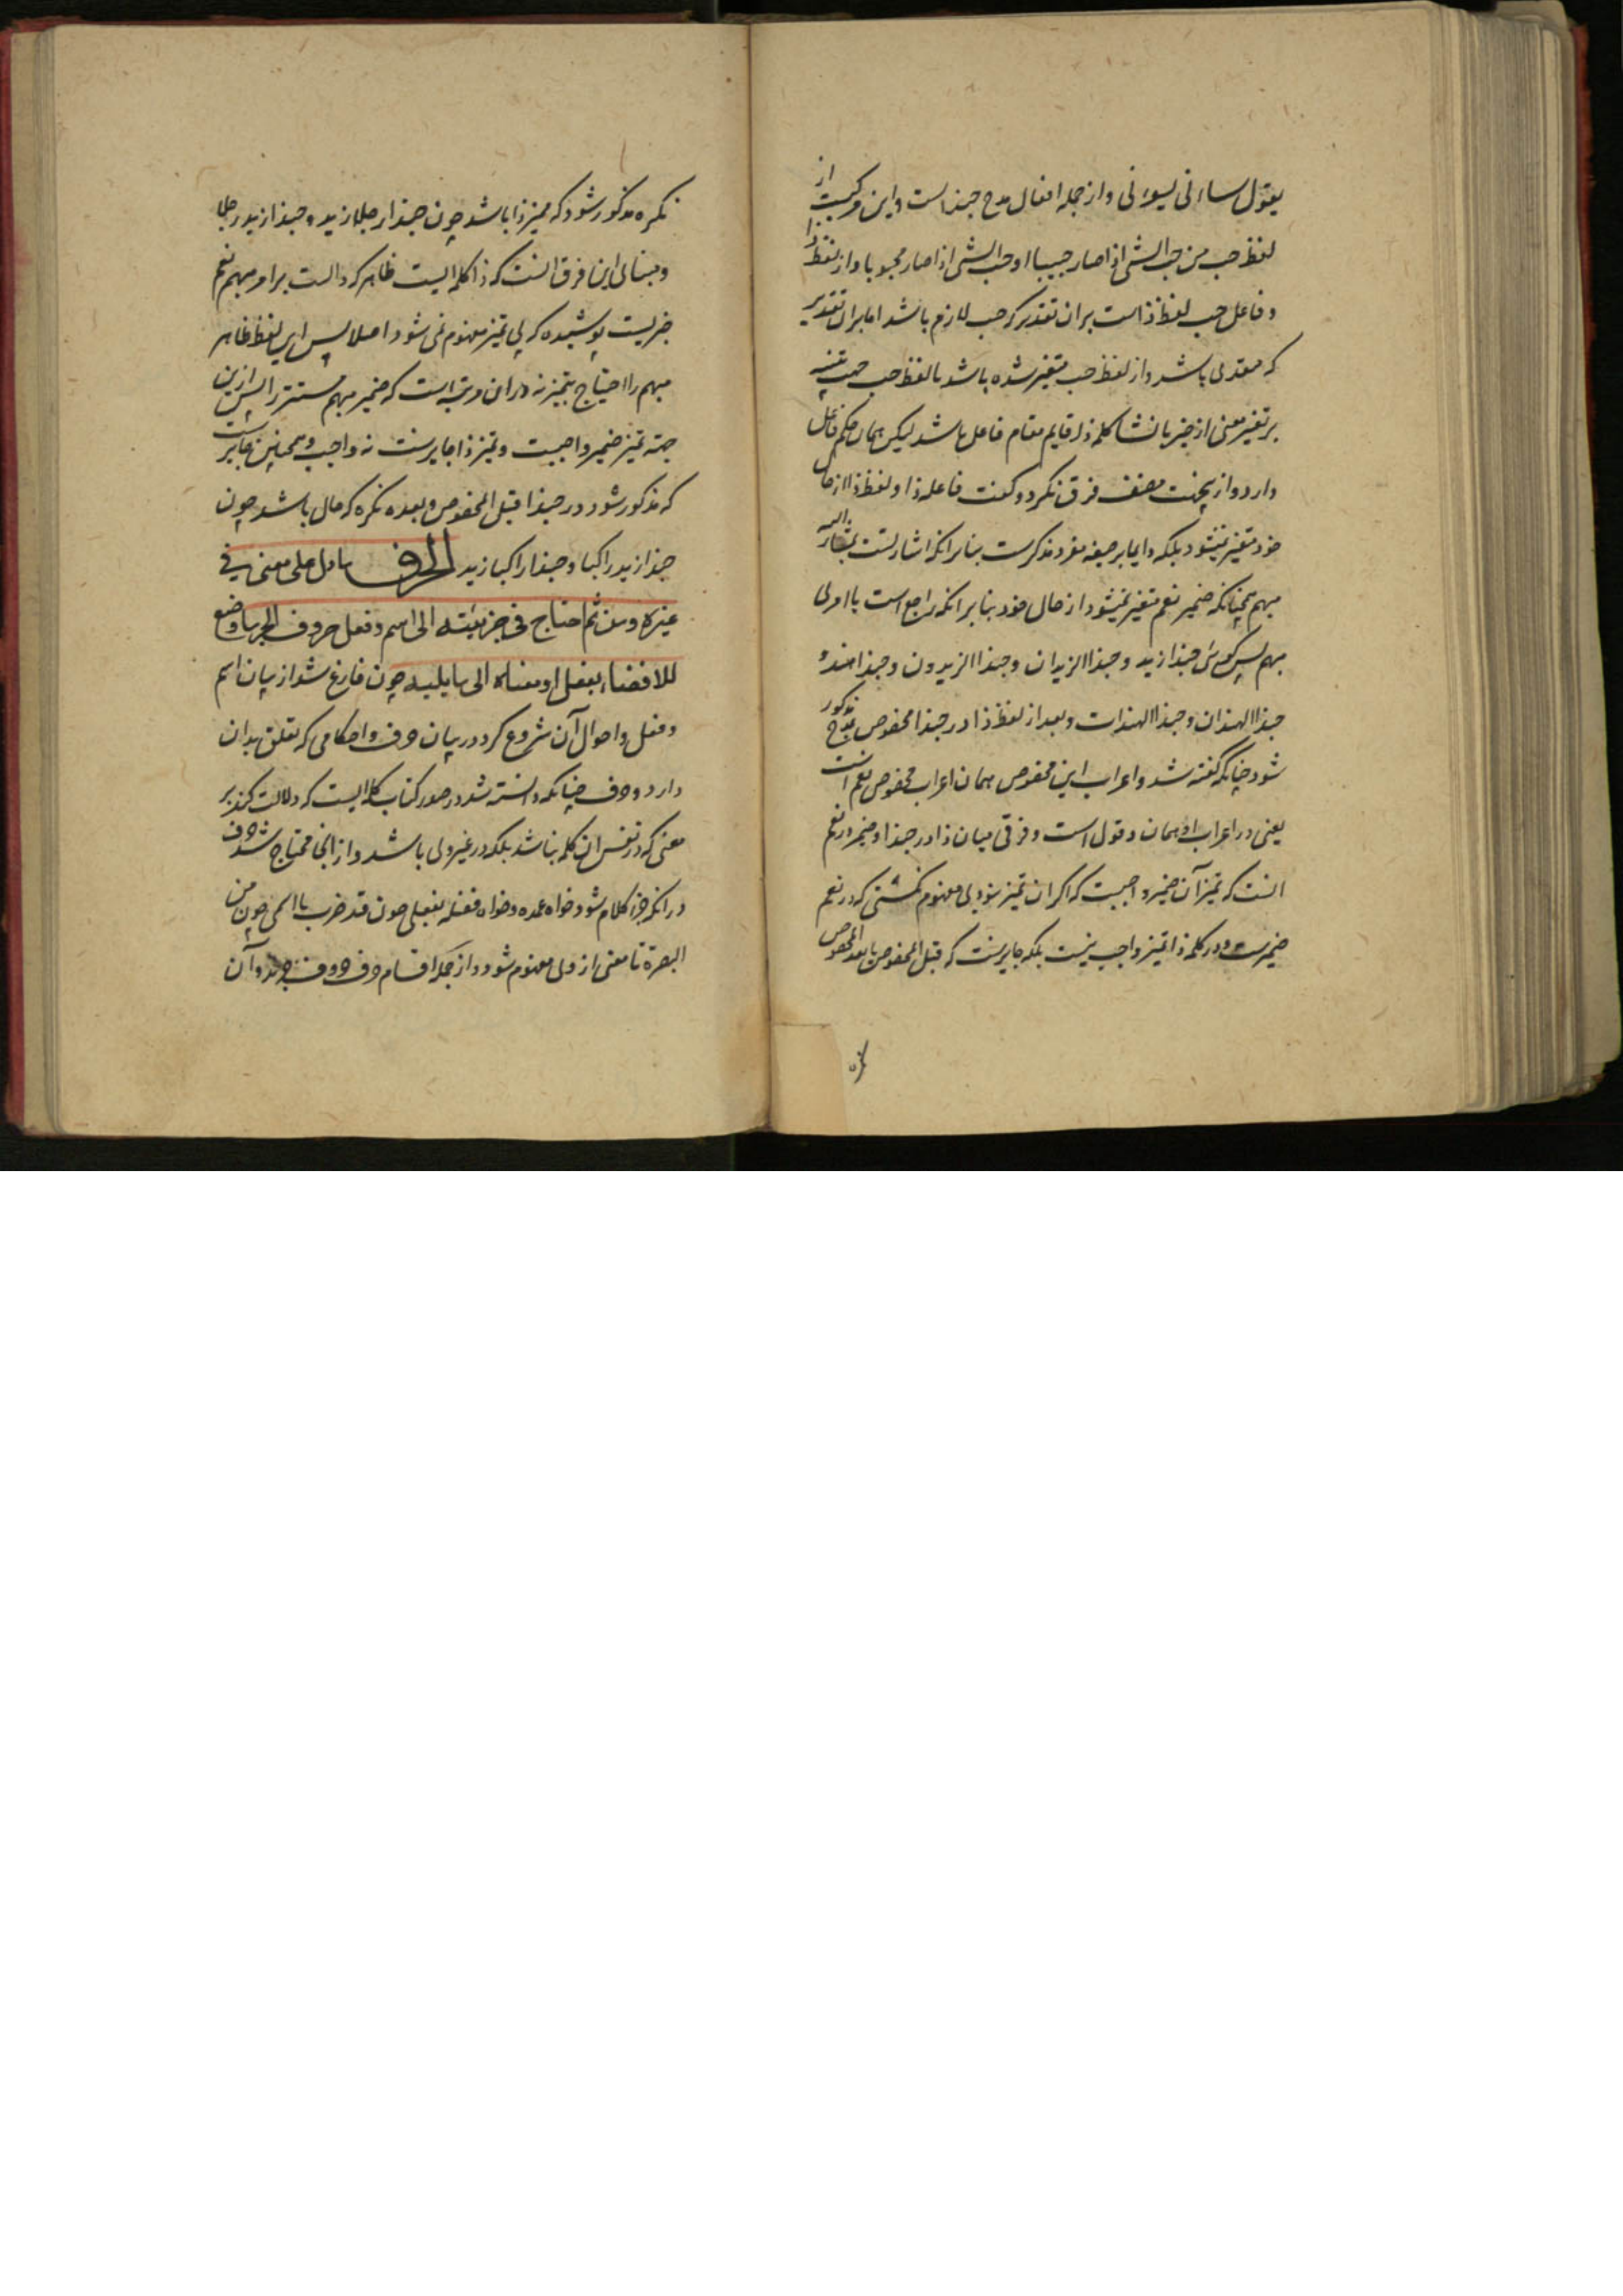 یقول ساءنی یسوءنی و از جمله افعال مدح حبذا است و این مرکبست از
لفظ حب من حب الشی اذا صار حبیبا او حب الشی اذا صار محبوبا و از لفظ ذا
و فاعل حب لفظ ذا است بران تقدیر که حب لازم باشد اما بران تقدیر
که متعدی باشد و از لفظ حب متغیر شده باشد با لفظ حب جهت تنبیه
بر تغیر معنی از خبر بانشا کلمه ذا قایم مقام فاعل باشد لیکن همان حکم فاعل
دارد و ازینجهت مصنف فرق نکرد و کفت فاعله ذا و لفظ ذا از حال
خود متغیر نمیشود بلکه دایما بر صیغه مفرد مذکرست بنابرانکه اشارتست بمشار الیه
مبهم همچنانکه ضمیر نعم متغیر نمیشود از حال خود بنابرانکه راجع است با امری
مبهم پس کوئی حبذا زید و حبذا الزیدان و حبذا الزیدون و حبذا هند و
حبذا الهندان و حبذا الهندات و بعد از لفظ ذا در حبذا مخصوص بمدح مذکور
شود چنانکه کفته شد و اعراب این مخصوص همان اعراب مخصوص نعم است
یعنی در اعراب او همان دو قول است و فرقی میان ذا در حبذا و ضمیر در نعم
انست که تمیز آن ضمیر واجبست که اکر ان تمیز نبودی مفهوم نکشتی که در نعم
ضمیرست و در کلمه ذا تمیز واجب نیست بلکه جایزست که قبل المخصوص یا بعد المخصوص
نکره
نکره مذکور شود که ممیز ذا باشد چون حبذا رجلا زید و حبذا زید رجلا
و مبنای این فرق انست که ذا کلمه ایست ظاهر که دالست بر امر مبهم نعم
ضمیریست پوشیده که بی تمیز مفهوم نمی شود اصلا پس این لفظ ظاهر
مبهم را احتیاج بتمیز نه دران مرتبه است که ضمیر مبهم مستتر را پس ازین
جهة تمیز ضمیر واجبست و تمیز ذا جایزست نه واجب و همچنین جایزست
که مذکور شود در حبذا قبل المخصوص و بعده نکره که حال باشد چون
حبذا زید راکبا و حبذا راکبا زید الحرف ما دل علی معنی فی
غیره و من ثم احتاج فی جزئیته الی اسم و فعل حروف الجر ما وضع
للافضاء بفعل او معناه الی ما یلیه چون فارغ شد از بیان اسم
و فعل و احوال آن شروع کرد در بیان حرف و احکامی که تعلق بدان
دارد و حرف چنانکه دانسته شد در صدر کتاب کلمه ایست که دلالت کند بر
معنی که در نفس ان کلمه نباشد بلکه در غیر وی باشد و از انجا محتاج شد حرف
در انکه جزء کلام شود خواه عمده و خواه فضله بفعلی چون قد ضرب یا اسمی چون من
البصرة تا معنی از وی مفهوم شود و از جمله اقسام حرف حروف جر بود و آن